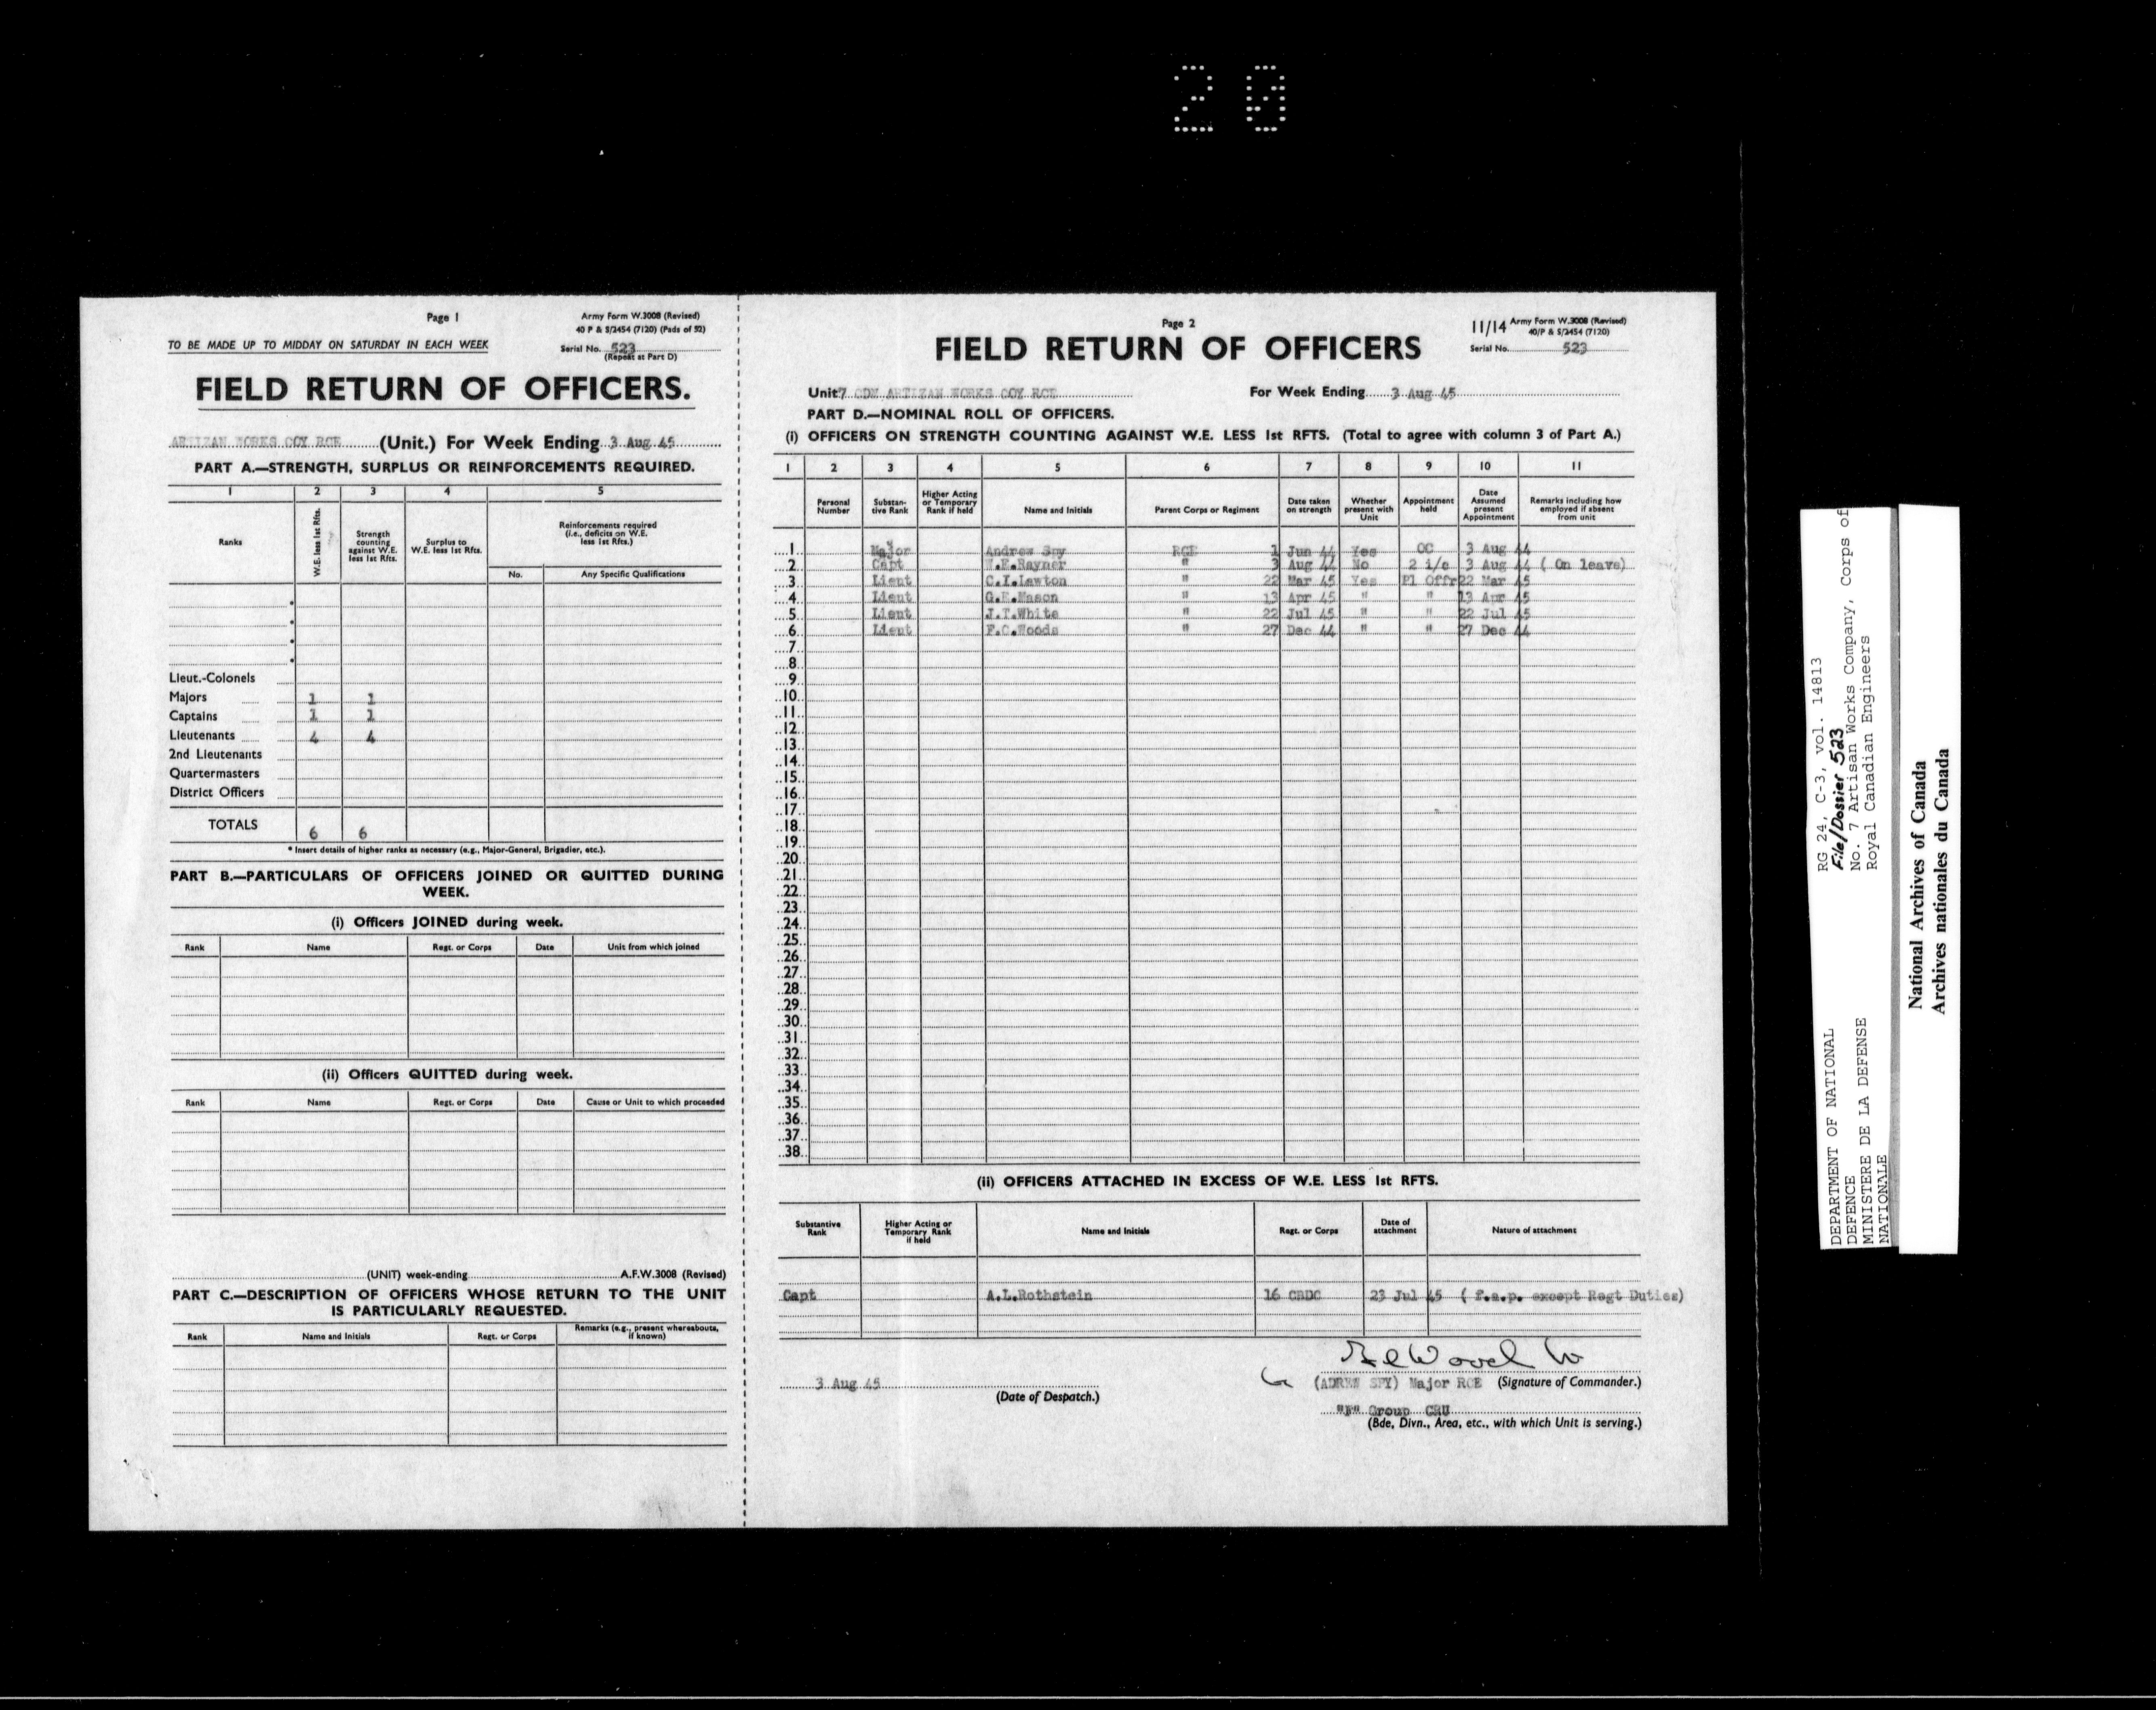 20
Page 1
Army Form W.3008 (Revised)
40 P & S/2454 (7120) (Pads of 52)
TO BE MADE UP TO MIDDAY ON SATURDAY IN EACH WEEK
Serial No. 523
(Repeat at Part D)
FIELD RETURN OF OFFICERS.
ARTIZAN WORKS COY RCE (Unit.) For Week Ending 3 Aug 45
PART A.—STRENGTH, SURPLUS OR REINFORCEMENTS REQUIRED.
1 2 3 4 5
Ranks
W.E. less 1st Rfts.
Strength counting against W.E. less 1st Rfts.
Surplus to W.E. less 1st Rfts.
Reinforcements required (i.e., deficits on W.E. less 1st Rfts.)
No. Any Specific Qualifications
Lieut.-Colonels
Majors 1 1
Captains 1 1
Lieutenants 4 4
2nd Lieutenants
Quartermasters
District Officers
TOTALS 6 6
* Insert details of higher ranks as necessary (e.g., Major-General, Brigadier, etc.).
PART B.—PARTICULARS OF OFFICERS JOINED OR QUITTED DURING
WEEK.
(i) Officers JOINED during week.
Rank Name Regt. or Corps Date Unit from which joined
(ii) Officers QUITTED during week.
Rank Name Regt. or Corps Date Cause or Unit to which proceeded
(UNIT) week-ending A.F.W.3008 (Revised)
PART C.—DESCRIPTION OF OFFICERS WHOSE RETURN TO THE UNIT
IS PARTICULARLY REQUESTED.
Rank Name and Initials Regt. or Corps Remarks (e.g., present whereabouts, if known)
Page 2
11/14 Army Form W.3008 (Revised)
40/P & S/2454 (7120)
Serial No. 523
FIELD RETURN OF OFFICERS
Unit 7 CDN ARTIZAN WORKS COY RCE For Week Ending 3 Aug 45
PART D.—NOMINAL ROLL OF OFFICERS.
(i) OFFICERS ON STRENGTH COUNTING AGAINST W.E. LESS 1st RFTS. (Total to agree with column 3 of Part A.)
1 2 3 4 5 6 7 8 9 10 11
Personal Number
Substantive Rank
Higher Acting or Temporary Rank if held
Name and Initials
Parent Corps or Regiment
Date taken on strength
Whether present with Unit
Appointment held
Date Assumed present Appointment
Remarks including how employed if absent from unit
1 Major Andrew Spy RCE 1 Jun 44 Yes OC 3 Aug 44
2 Capt W.E.Rayner " 3 Aug 44 No 2 i/c 3 Aug 44 ( On leave)
3 Lieut C.I.Lawton " 22 Mar 45 Yes Pl Offr 22 Mar 45
4 Lieut G.E.Mason " 13 Apr 45 " " 13 Apr 45
5 Lieut J.T.White " 22 Jul 45 " " 22 Jul 45
6 Lieut F.C.Woods " 27 Dec 44 " " 27 Dec 44
7
8
9
10
11
12
13
14
15
16
17
18
19
20
21
22
23
24
25
26
27
28
29
30
31
32
33
34
35
36
37
38
(ii) OFFICERS ATTACHED IN EXCESS OF W.E. LESS 1st RFTS.
Substantive Rank
Higher Acting or Temporary Rank if held
Name and Initials
Regt. or Corps
Date of attachment
Nature of attachment
Capt A.L.Rothstein 16 CBDC 23 Jul 45 ( f.a.p. except Regt Duties)
3 Aug 45
(Date of Despatch.)
(ADREW SPY) Major RCE (Signature of Commander.)
"F" Group CRU
(Bde, Divn., Area, etc., with which Unit is serving.)
DEPARTMENT OF NATIONAL
DEFENCE
MINISTERE DE LA DEFENSE
NATIONALE
RG 24, C-3, vol. 14813
File/Dossier 523
No. 7 Artisan Works Company, Corps of
Royal Canadian Engineers
National Archives of Canada
Archives nationales du Canada